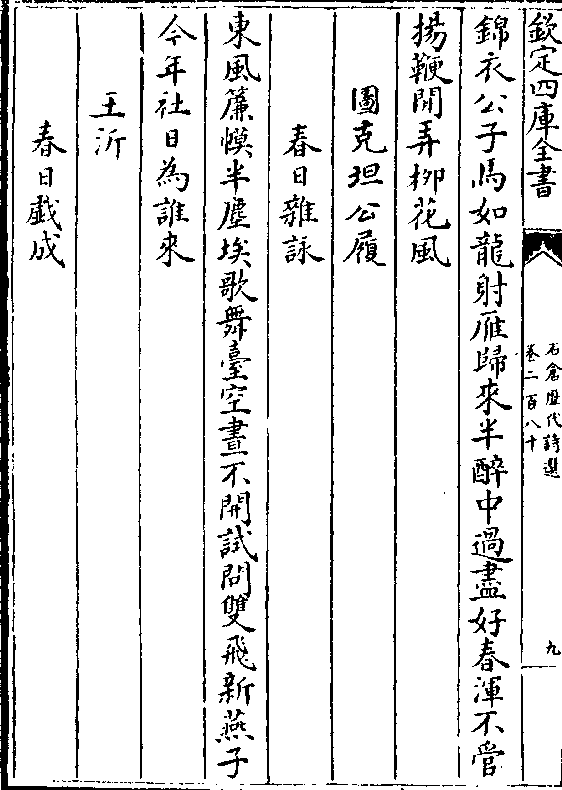 欽定四庫全書
石倉歴代詩選
卷二百八十
九
錦衣公子馬如龍射雁歸來半醉中過盡好春渾不管
揚鞭閒弄栁花風
圖克坦公履
春日雜詠
東風簾幙半塵埃歌舞臺空晝不開試問雙飛新燕子
今年社日為誰來
王沂
春日戲成